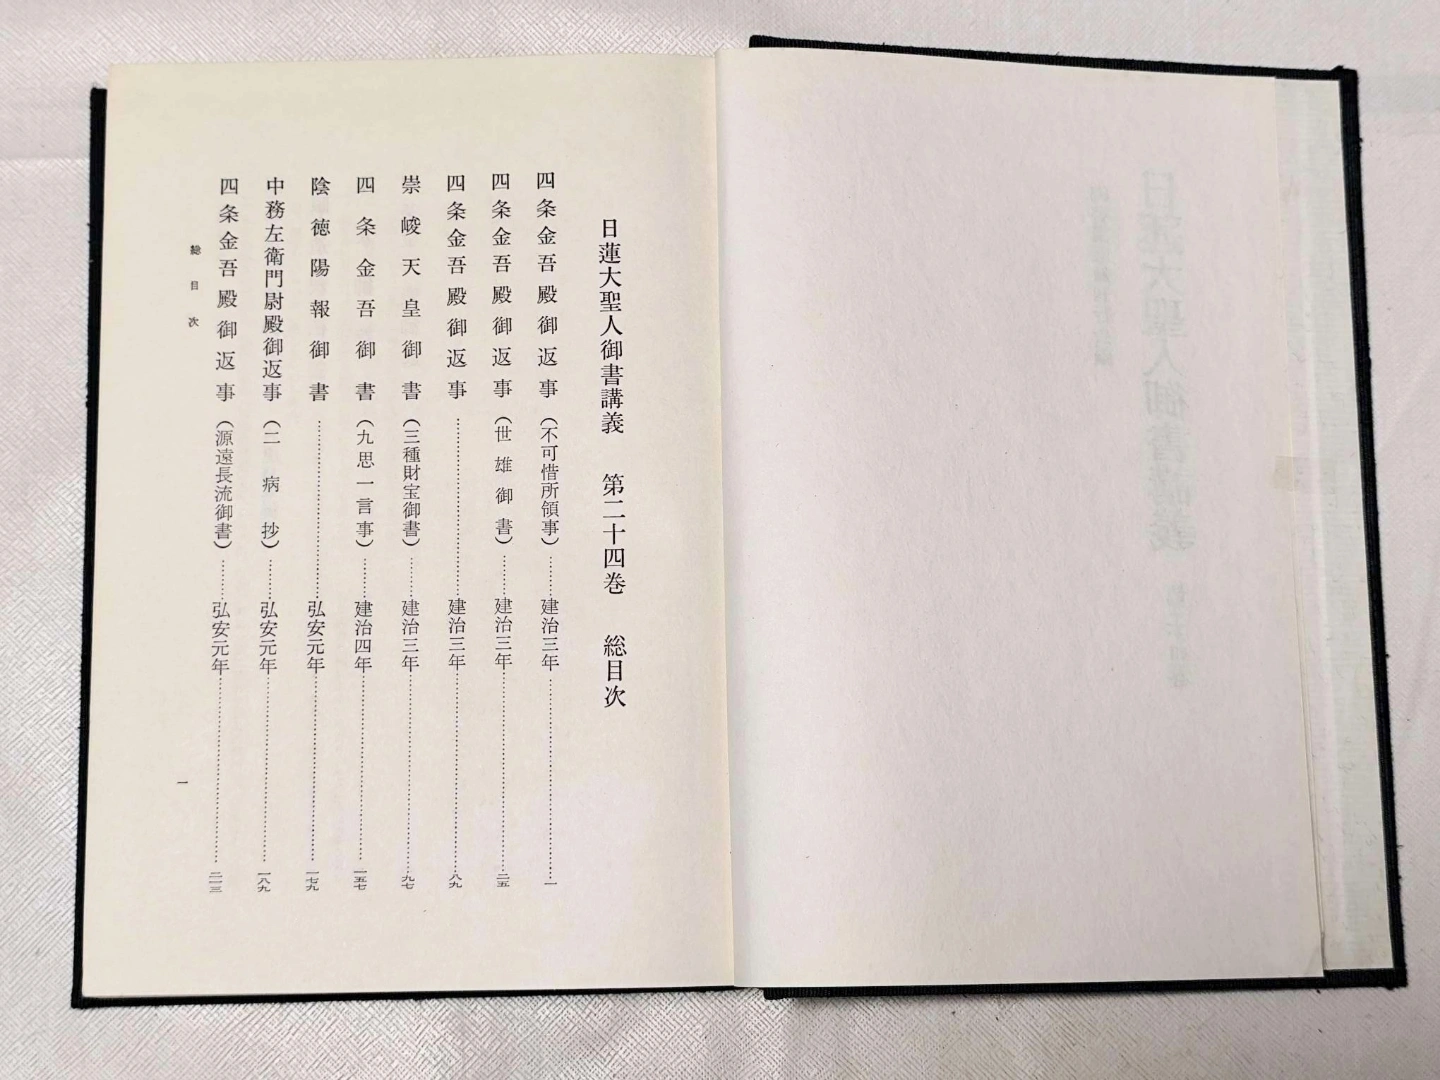 日蓮大聖人御書講義　第二十四巻　総目次
四条金吾殿御返事（不可惜所領事）………建治三年………一
四条金吾殿御返事（世雄御書）………建治三年………二五
四条金吾殿御返事………建治三年………八九
崇峻天皇御書（三種財宝御書）………建治三年………九七
四条金吾御書（九思一言事）………建治四年………一五七
陰徳陽報御書………弘安元年………一七九
中務左衛門尉殿御返事（二病抄）………弘安元年………一八九
四条金吾殿御返事（源遠長流御書）………弘安元年………二一三
総目次
一